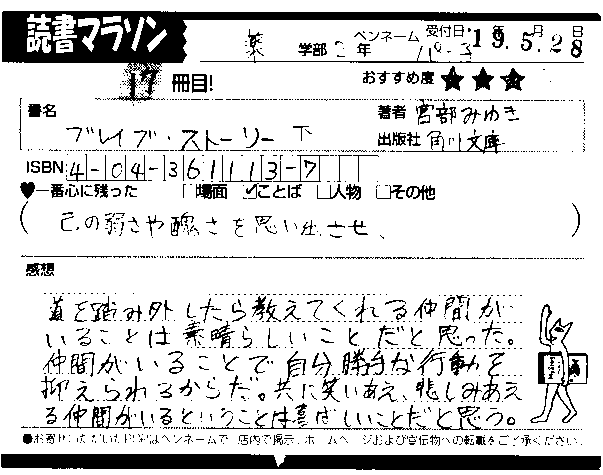 読書マラソン
薬 学部 2年 ペンネーム 受付日 '19.5月28日
17 冊目! おすすめ度 ★★★
書名 ブレイブ・ストーリー 下
著者 宮部みゆき
出版社 角川文庫
ISBN 4-04-361113-7
♥一番心に残った □場面 ☑ことば □人物 □その他
( 己の弱さや醜さを思い出させ、 )
感想
道を踏み外したら教えてくれる仲間が
いることは素晴らしいことだと思った。
仲間がいることで自分勝手な行動を
抑えられるからだ。共に笑いあえ、悲しみあえ
る仲間がいるということは喜ばしいことだと思う。
●お寄せいただいたPOPはペンネームで店内で掲示、ホームページおよび宣伝物への転載をご了承ください。